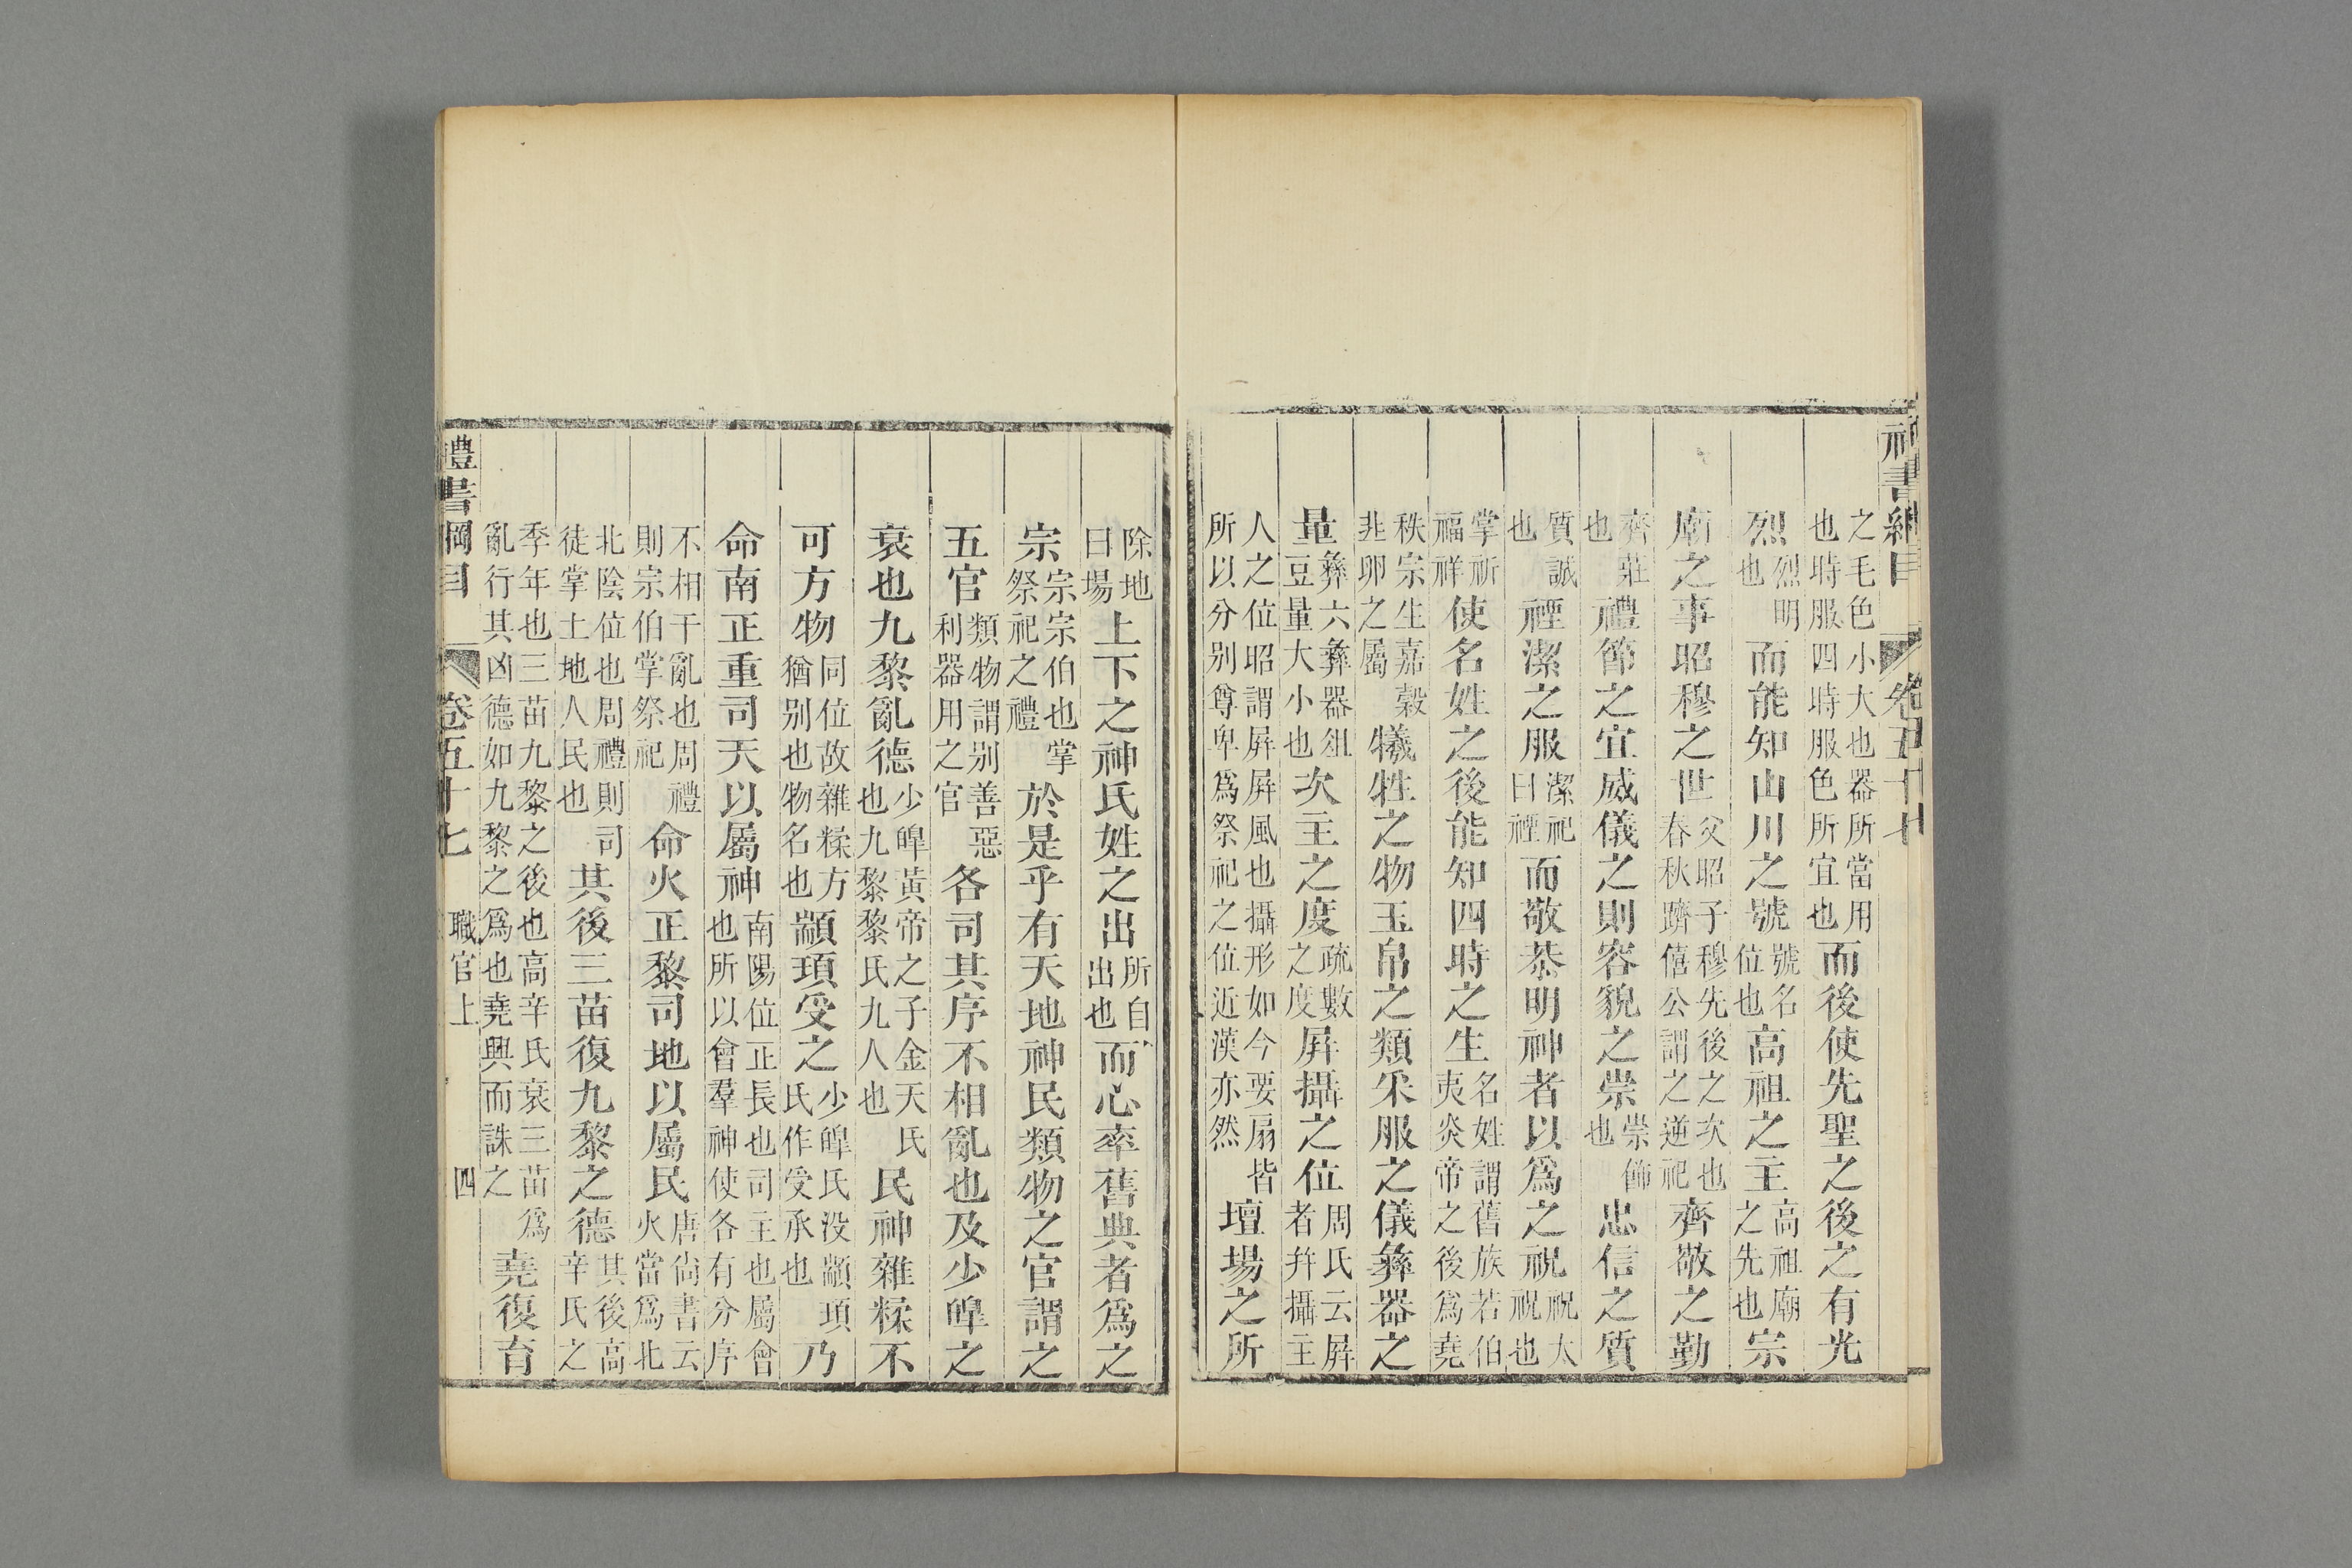 禮書綱目 卷五十七
之毛色小大也器所當用也時服四時服色所宜也而後使先聖之後之有光
烈烈明也而能知山川之號號名位也高祖之主高祖廟之先也宗
廟之事昭穆之世父昭子穆先後之次也春秋躋僖公謂之逆祀齊敬之勤
齊莊也禮節之宜威儀之則容貌之崇崇飾也忠信之質
質誠也禋潔之服潔祀曰禋而敬恭明神者以爲之祝祝太祝也
掌祈福祥使名姓之後能知四時之生名姓謂舊族若伯夷炎帝之後爲堯
秩宗生嘉穀韭卵之屬犧牲之物玉帛之類采服之儀彝器之
量彝六彝器俎豆量大小也次主之度疏數之度屛攝之位周氏云屛者幷攝主
人之位昭謂屛屛風也攝形如今要扇皆所以分别尊卑爲祭祀之位近漢亦然壇場之所
除地曰場上下之神氏姓之出所自出也而心率舊典者爲之
宗宗宗伯也掌祭祀之禮於是乎有天地神民類物之官謂之
五官類物謂别善惡利器用之官各司其序不相亂也及少皥之
衰也九黎亂德少皥黃帝之子金天氏也九黎黎氏九人也民神雜糅不
可方物同位故雜糅方猶别也物名也顓頊受之少皥氏没顓頊氏作受承也乃
命南正重司天以屬神南陽位正長也司主也屬會也所以會羣神使各有分序
不相干亂也周禮則宗伯掌祭祀命火正黎司地以屬民唐尙書云火當爲北
北陰位也周禮則司徒掌土地人民也其後三苗復九黎之德其後高辛氏之
季年也三苗九黎之後也高辛氏衰三苗爲亂行其凶德如九黎之爲也堯興而誅之堯復育
禮書綱目 卷五十七 職官上 四